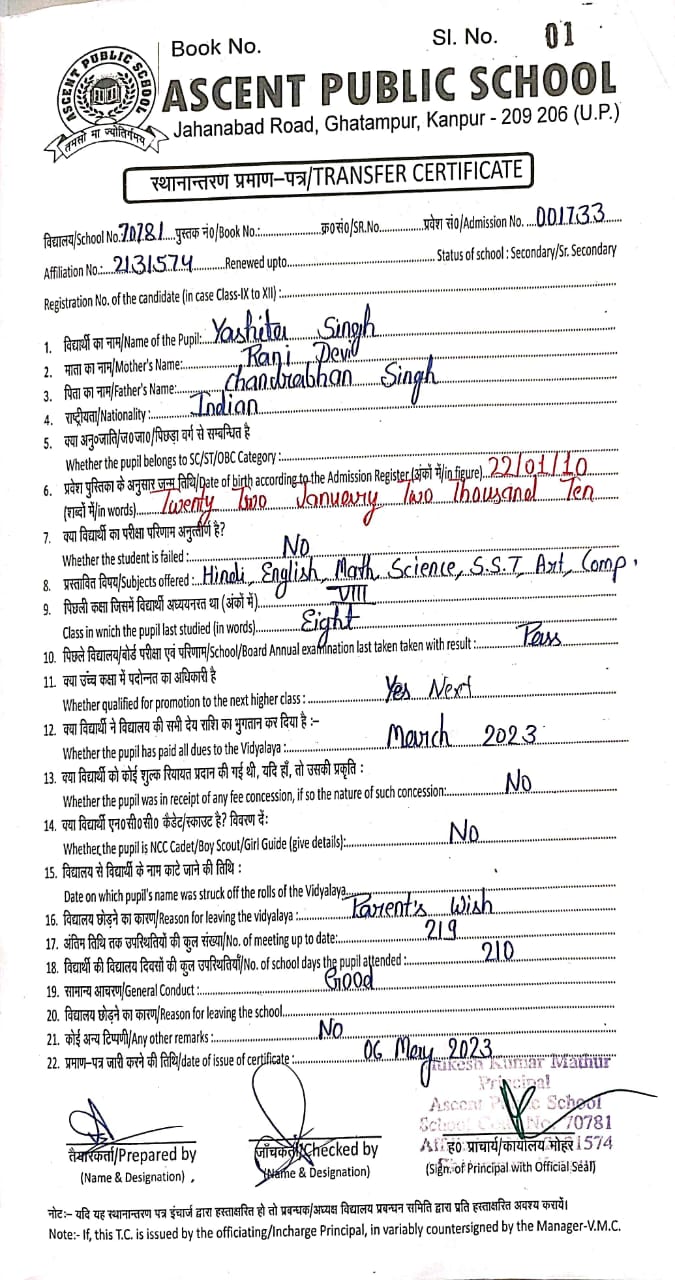 Book No. Sl. No. 01
ASCENT PUBLIC SCHOOL
ASCENT PUBLIC SCHOOL
तमसो मा ज्योतिर्गमय
Jahanabad Road, Ghatampur, Kanpur - 209 206 (U.P.)
स्थानान्तरण प्रमाण-पत्र/TRANSFER CERTIFICATE
विद्यालय/School No. 70781 पुस्तक नं०/Book No.: क्र०सं०/SR.No. प्रवेश सं०/Admission No. 001733
Affiliation No.: 2131574 Renewed upto Status of school : Secondary/Sr. Secondary
Registration No. of the candidate (in case Class-IX to XII) :
1. विद्यार्थी का नाम/Name of the Pupil: Yashita Singh
2. माता का नाम/Mother's Name: Rani Devi
3. पिता का नाम/Father's Name: Chandrabhan Singh
4. राष्ट्रीयता/Nationality : Indian
5. क्या अनु०जाति/ज०जा०/पिछड़ा वर्ग से सम्बन्धित है
Whether the pupil belongs to SC/ST/OBC Category :
6. प्रवेश पुस्तिका के अनुसार जन्म तिथि/Date of birth according to the Admission Register (अंकों में/in figure) 22/01/10
(शब्दों में/in words) Twenty Two January Two Thousand Ten
7. क्या विद्यार्थी का परीक्षा परिणाम अनुत्तीर्ण है?
Whether the student is failed : No
8. प्रस्तावित विषय/Subjects offered : Hindi, English, Math, Science, S.S.T, Art, Comp.
9. पिछली कक्षा जिसमें विद्यार्थी अध्ययनरत था (अंकों में) VIII
Class in wnich the pupil last studied (in words) Eight
10. पिछले विद्यालय/बोर्ड परीक्षा एवं परिणाम/School/Board Annual examination last taken taken with result : Pass
11. क्या उच्च कक्षा में पदोन्नत का अधिकारी है
Whether qualified for promotion to the next higher class : Yes Next
12. क्या विद्यार्थी ने विद्यालय की सभी देय राशि का भुगतान कर दिया है :-
Whether the pupil has paid all dues to the Vidyalaya : March 2023
13. क्या विद्यार्थी को कोई शुल्क रियायत प्रदान की गई थी, यदि हाँ, तो उसकी प्रकृति :
Whether the pupil was in receipt of any fee concession, if so the nature of such concession: No
14. क्या विद्यार्थी एन०सी०सी० कैडेट/स्काउट है? विवरण दें:
Whether the pupil is NCC Cadet/Boy Scout/Girl Guide (give details): No
15. विद्यालय से विद्यार्थी के नाम काटे जाने की तिथि :
Date on which pupil's name was struck off the rolls of the Vidyalaya
16. विद्यालय छोड़ने का कारण/Reason for leaving the vidyalaya : Parent's Wish
17. अंतिम तिथि तक उपस्थितियों की कुल संख्या/No. of meeting up to date: 219
18. विद्यार्थी की विद्यालय दिवसों की कुल उपस्थितियाँ/No. of school days the pupil attended : 210
19. सामान्य आचरण/General Conduct : Good
20. विद्यालय छोड़ने का कारण/Reason for leaving the school
21. कोई अन्य टिप्पणी/Any other remarks : No
22. प्रमाण-पत्र जारी करने की तिथि/date of issue of certificate : 06 May 2023
Kumar Mathur
Principal
Ascent Public School
School 70781
1574
तैयारकर्ता/Prepared by जाँचकर्ता/Checked by ह० प्राचार्य/कार्यालय मोहर
(Name & Designation) (Name & Designation) (Sign. of Principal with Official Seal)
नोट:- यदि यह स्थानान्तरण पत्र इंचार्ज द्वारा हस्ताक्षरित हो तो प्रबन्धक/अध्यक्ष विद्यालय प्रबन्धन समिति द्वारा प्रति हस्ताक्षरित अवश्य करायें।
Note:- If, this T.C. is issued by the officiating/Incharge Principal, in variably countersigned by the Manager-V.M.C.